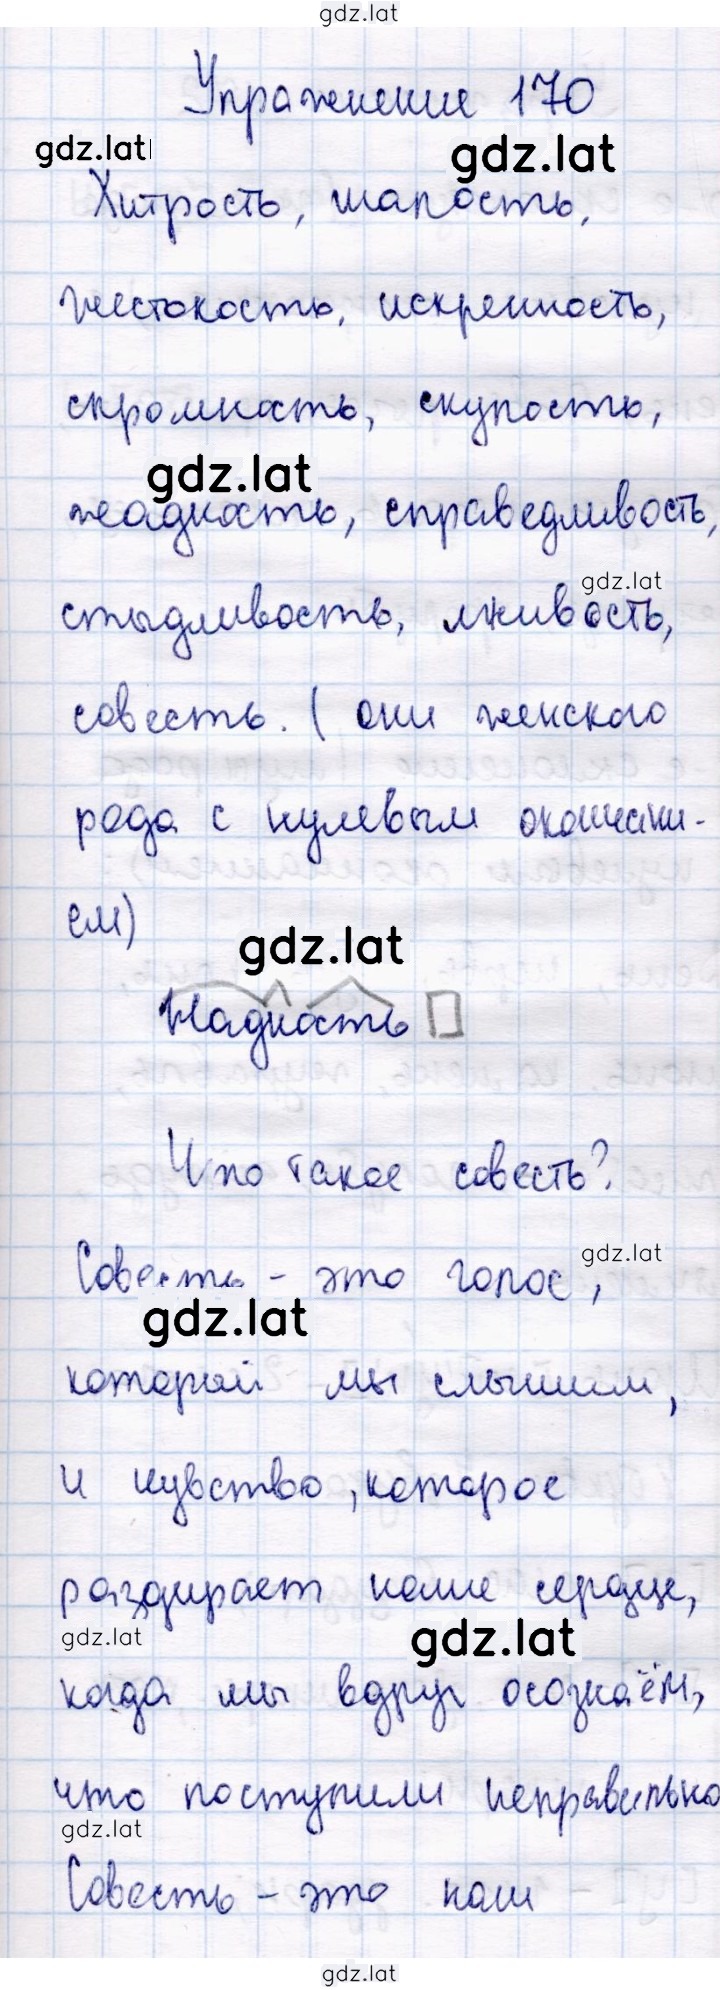 gdz.lat
Упражнение 170
gdz.lat
gdz.lat
Хитрость, шалость,
жестокость, искренность,
скромность, скупость,
gdz.lat
жадность, справедливость,
gdz.lat
стыдливость, лживость,
совесть. (они женского
рода с нулевым окончани-
ем)
gdz.lat
Жадность
Что такое совесть?
Совесть - это голос,
gdz.lat
gdz.lat
который мы слышим,
и чувство, которое
раздирает наше сердце,
gdz.lat
gdz.lat
когда мы вдруг осознаём,
что поступили неправильно
gdz.lat
Совесть - это наш
gdz.lat